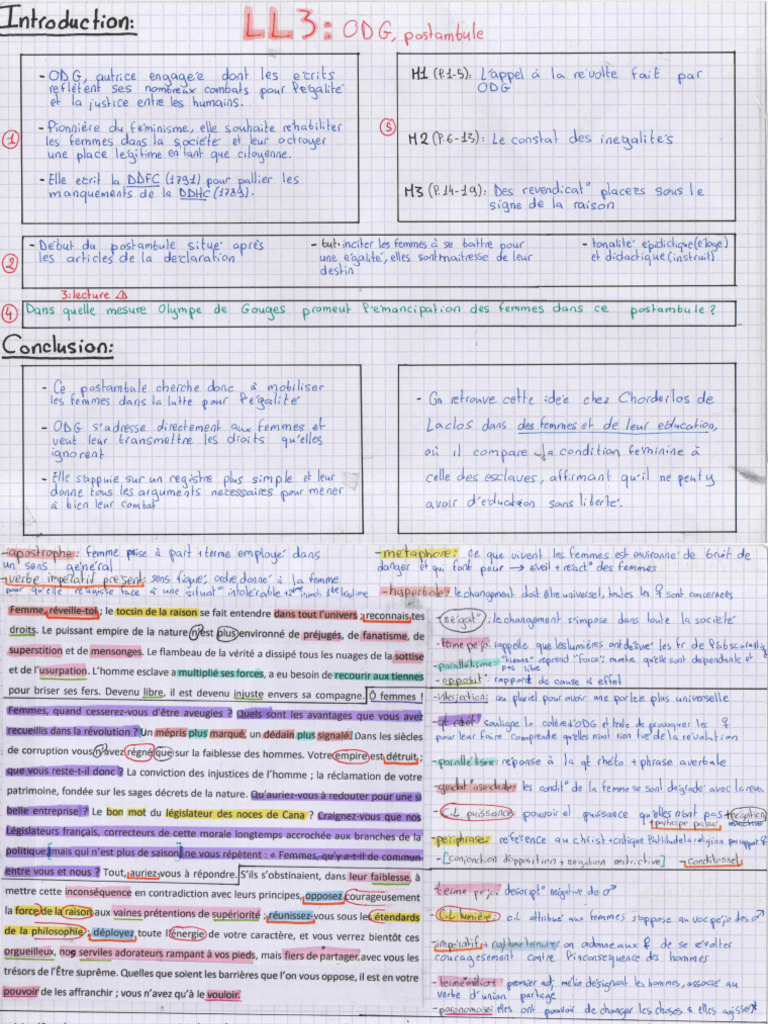 Introduction:
LL3: ODG, postambule
- ODG, autrice engagée dont les écrits
reflètent ses nombreux combats pour l'égalité
et la justice entre les humains.
- Pionnière du féminisme, elle souhaite réhabiliter
les femmes dans la société et leur octroyer
une place légitime en tant que citoyenne.
- Elle écrit la DDFC (1791) pour pallier les
manquements de la DDHC (1789).
1
M1 (P.1-5): L'appel à la révolte fait par
ODG
M2 (P.6-13): Le constat des inégalités
M3 (P.14-19): Des revendicat° placées sous le
signe de la raison
5
2
- Début du postambule situé après
les articles de la déclaration
- but: inciter les femmes à se battre pour
une égalité, elles sont maitresse de leur
destin
- tonalité épidictique (éloge)
et didactique (instruit)
3: lecture
4
Dans quelle mesure Olympe de Gouges promeut l'émancipation des femmes dans ce postambule ?
Conclusion:
- Ce postambule cherche donc à mobiliser
les femmes dans la lutte pour l'égalité
- ODG s'adresse directement aux femmes et
veut leur transmettre les droits qu'elles
ignorent
- Elle s'appuie sur un registre plus simple et leur
donne tous les arguments nécessaires pour mener
à bien leur combat
- On retrouve cette idée chez Chorderlos de
Laclos dans des femmes et de leur éducation,
où il compare la condition féminine à
celle des esclaves, affirmant qu'il ne peut y
avoir d'éducation sans liberté.
- apostrophe: femme prise à part + terme employé dans
un sens général
- verbe impératif présent: sens figuré, ordre donné à la femme
pour qu'elle réagisse face à une situat° intolérable
- métaphore: ce que vivent les femmes est environné de bruit de
danger et qui font peur → éveil + réact° des femmes
- hyperbole: le changement doit être universel, toutes les ♀ sont concernées
Femme, réveille-toi ; le tocsin de la raison se fait entendre dans tout l'univers ; reconnais tes
droits. Le puissant empire de la nature n'est plus environné de préjugés, de fanatisme, de
superstition et de mensonges. Le flambeau de la vérité a dissipé tous les nuages de la sottise
et de l'usurpation. L'homme esclave a multiplié ses forces, a eu besoin de recourir aux tiennes
pour briser ses fers. Devenu libre, il est devenu injuste envers sa compagne. Ô femmes !
Femmes, quand cesserez-vous d'être aveugles ? Quels sont les avantages que vous avez
recueillis dans la révolution ? Un mépris plus marqué, un dédain plus signalé. Dans les siècles
de corruption vous n'avez régné que sur la faiblesse des hommes. Votre empire est détruit ;
que vous reste-t-il donc ? La conviction des injustices de l'homme ; la réclamation de votre
patrimoine, fondée sur les sages décrets de la nature. Qu'auriez-vous à redouter pour une si
belle entreprise ? Le bon mot du législateur des noces de Cana ? Craignez-vous que nos
Législateurs français, correcteurs de cette morale longtemps accrochée aux branches de la
politique, mais qui n'est plus de saison, ne vous répètent : « Femmes, qu'y a-t-il de commun
entre vous et nous ? Tout, auriez-vous à répondre. S'ils s'obstinaient, dans leur faiblesse, à
mettre cette inconséquence en contradiction avec leurs principes, opposez courageusement
la force de la raison aux vaines prétentions de supériorité ; réunissez-vous sous les étendards
de la philosophie ; déployez toute l'énergie de votre caractère, et vous verrez bientôt ces
orgueilleux, nos serviles adorateurs rampant à vos pieds, mais fiers de partager avec vous les
trésors de l'Être suprême. Quelles que soient les barrières que l'on vous oppose, il est en votre
pouvoir de les affranchir ; vous n'avez qu'à le vouloir.
- négat°: le changement s'impose dans toute la société
- terme péjo: rappelle que les lumières ont délivré les fr de l'obscura
- parallélisme: "homme" reprend "force", montre qu'elle sont dépendante et pas libre
- opposit° rapport de cause à effet
- interjection: un pluriel pour avoir une portée plus universelle
souligne la colère d'ODG et tente de provoquer les ♀
pour leur faire comprendre qu'elles n'ont rien tiré de la révolution
- parallélisme: réponse à la q† rhéto + phrase averbale
les condit° de la femme se sont dégradé avec la
- C.L puissance: pouvoir et puissance qu'elles n'ont pas +
+ participe passé
- périphrases: référence au christ + critique l'attitude de la religion par rapport ♀
- [conjonction d'opposition + négation restrictive] - conditionnel
terme péjo: descript° négative de ♂
- C.L lumière: C.L attribué aux femmes s'oppose au voc péjo des ♂
- impératif + rythme ternaire: on ordonne aux ♀ de se révolter
courageusement contre l'inconséquence des hommes
premier adj mélio désignant les hommes, associé au
verbe d'union partage
- paronomase: elles ont pouvoir de changer les choses & elles agissent